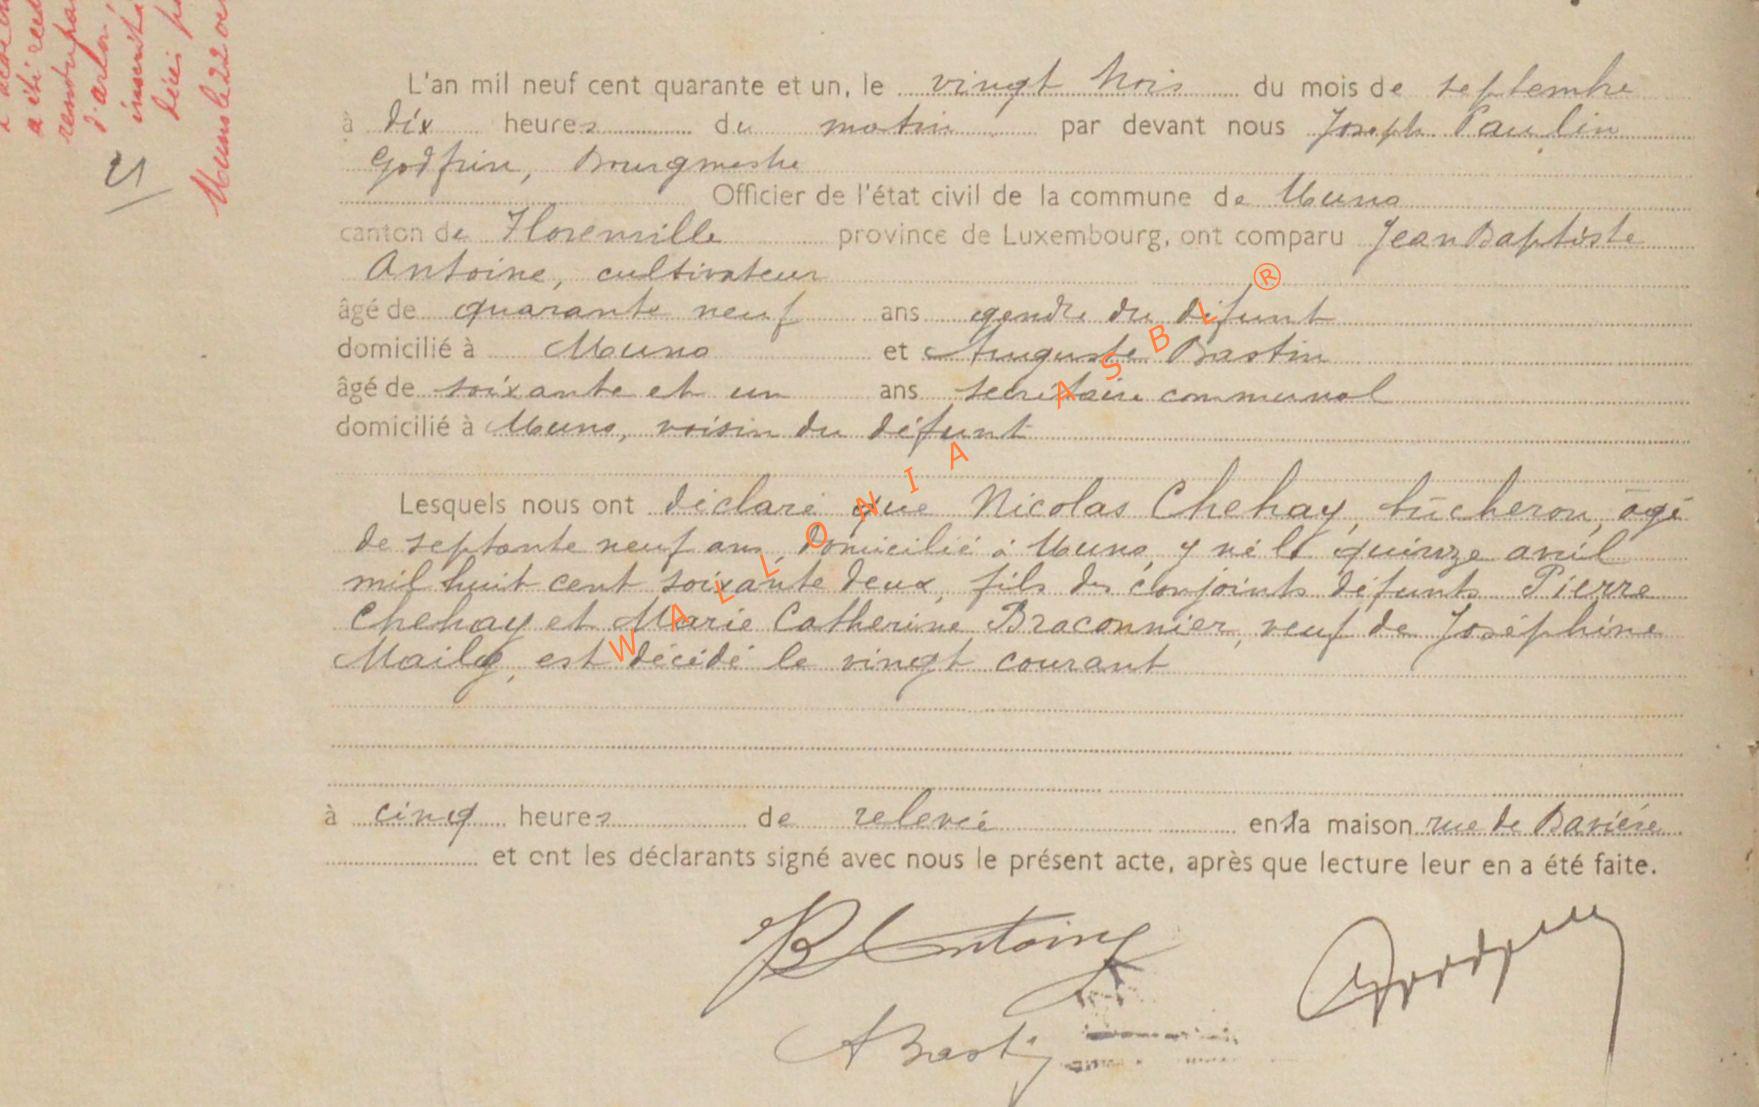 a été
d'arlon,
Muno le 22
21
L'an mil neuf cent quarante et un, le vingt trois du mois de septembre
à dix heures du matin par devant nous Joseph Paulin
Godfrin, Bourgmestre
Officier de l'état civil de la commune de Muno
canton de Florenville province de Luxembourg, ont comparu Jean Baptiste
Antoine, cultivateur
âgé de quarante neuf ans gendre du défunt
domicilié à Muno et Auguste Bastin
âgé de soixante et un ans secrétaire communal
domicilié à Muno, voisin du défunt
Lesquels nous ont déclaré que Nicolas Chehay, bûcheron, âgé
de septante neuf ans, domicilié à Muno, y né le quinze avril
mil huit cent soixante deux, fils des conjoints défunts Pierre
Chehay et Marie Catherine Braconnier, veuf de Joséphine
Maily, est décédé le vingt courant
à cinq heures de relevée en sa maison rue de Bavière
et ont les déclarants signé avec nous le présent acte, après que lecture leur en a été faite.
JB Antoine
A Bastin
WALLONIA ASBL ®